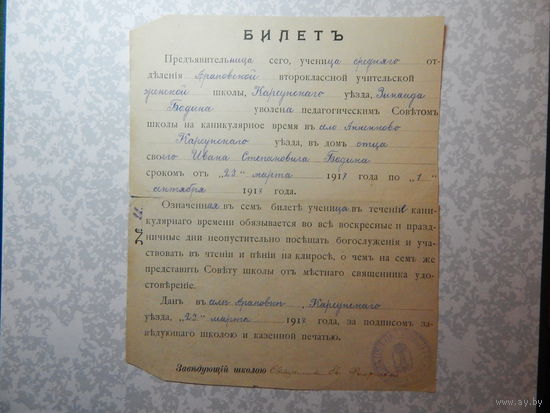 БИЛЕТЪ
Предъявительница сего, ученица средняго от-
дѣленія Араповской второклассной учительской
женской школы, Карсунскаго уѣзда, Зинаида
Бодина уволена педагогическимъ Совѣтомъ
школы на каникулярное время въ село Анненково
Карсунскаго уѣзда, въ домъ отца
своего Ивана Степановича Бодина
срокомъ отъ „23" марта 1918 года по „1"
сентября 1918 года.
Означенная въ семъ билетѣ ученица въ теченіе кани-
кулярнаго времени обязывается во всѣ воскресные и празд-
ничные дни неопустительно посѣщать богослуженія и участ-
вовать въ чтеніи и пѣніи на клиросѣ, о чемъ на семъ же
представитъ Совѣту школы отъ мѣстнаго священника удо-
стовѣреніе.
Данъ въ селѣ Араповкѣ, Карсунскаго
уѣзда, „23" марта 1918 года, за подписомъ за-
вѣдующаго школою и казенной печатью.
Завѣдующій школою Священникъ
№
www.ay.by